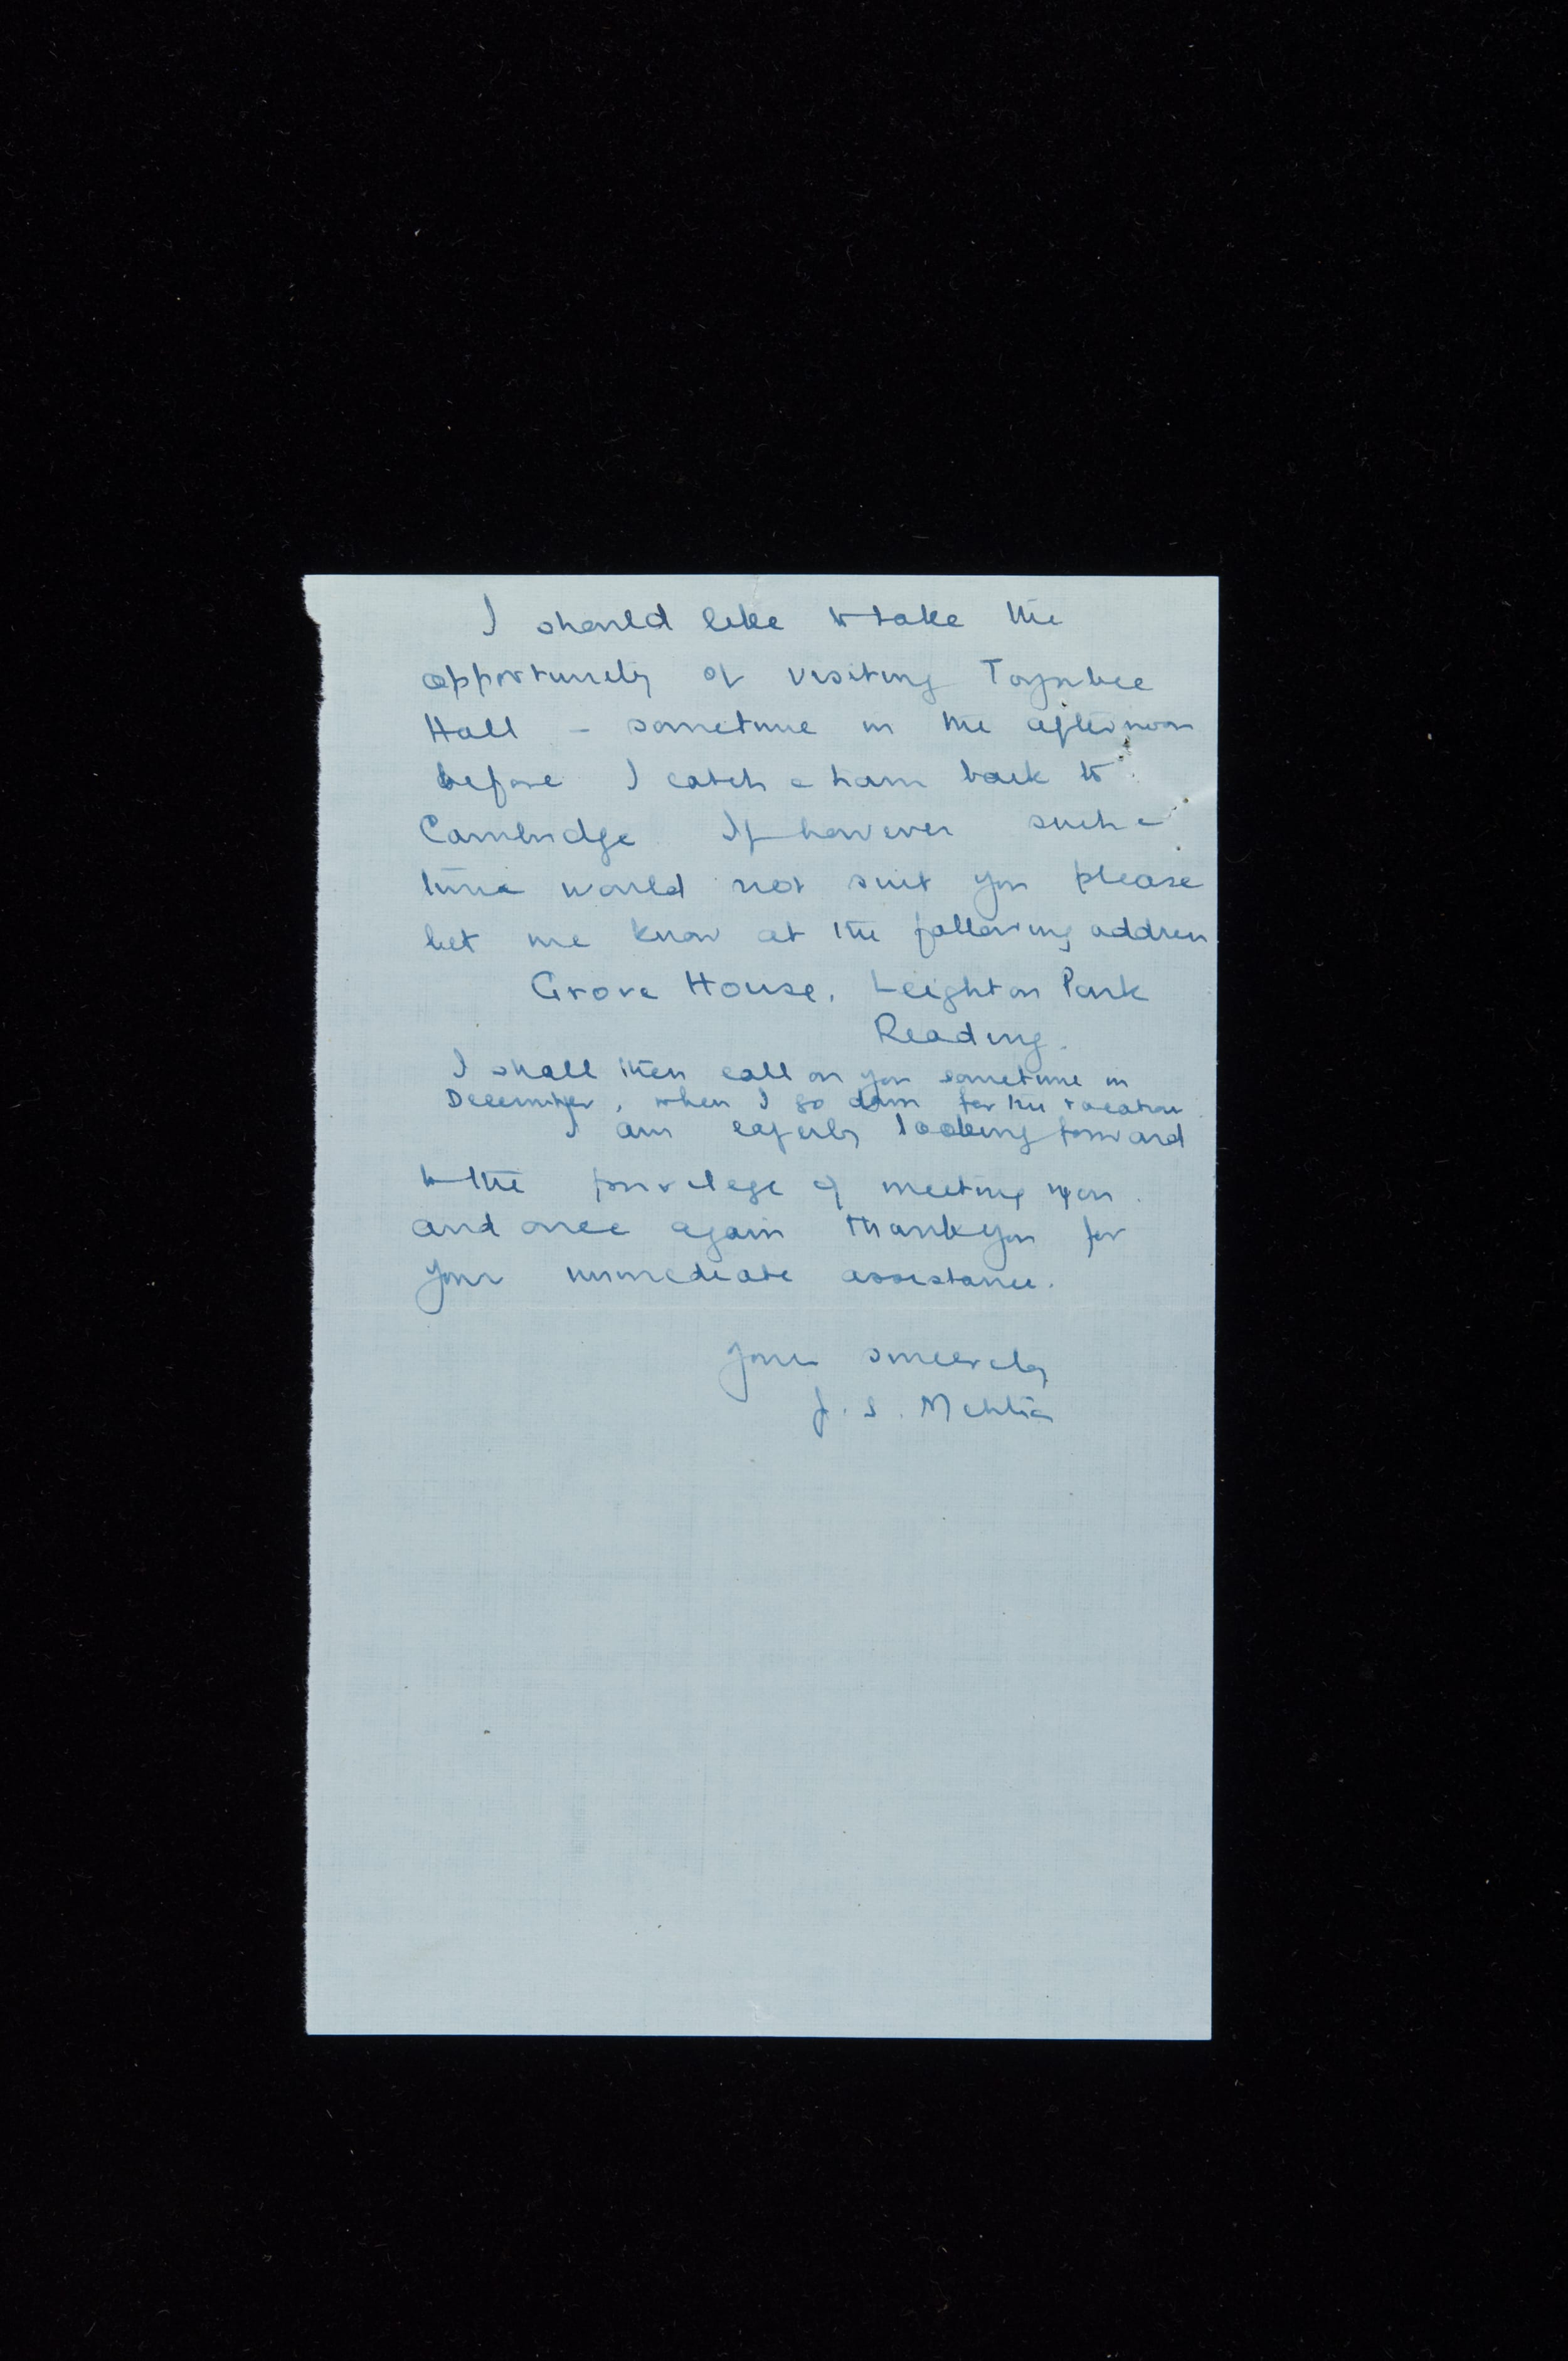 I should like to take the
opportunity of visiting Toynbee
Hall - sometime in the afternoon
before I catch a train back to
Cambridge. If however such a
time would not suit you please
let me know at the following address
Grove House, Leighton Park
Reading.
I shall then call on you sometime in
December, when I go down for the vacation
I am eagerly looking forward
to the privilege of meeting you.
and once again thank you for
your immediate assistance.
Yours sincerely
J. S. Mehta